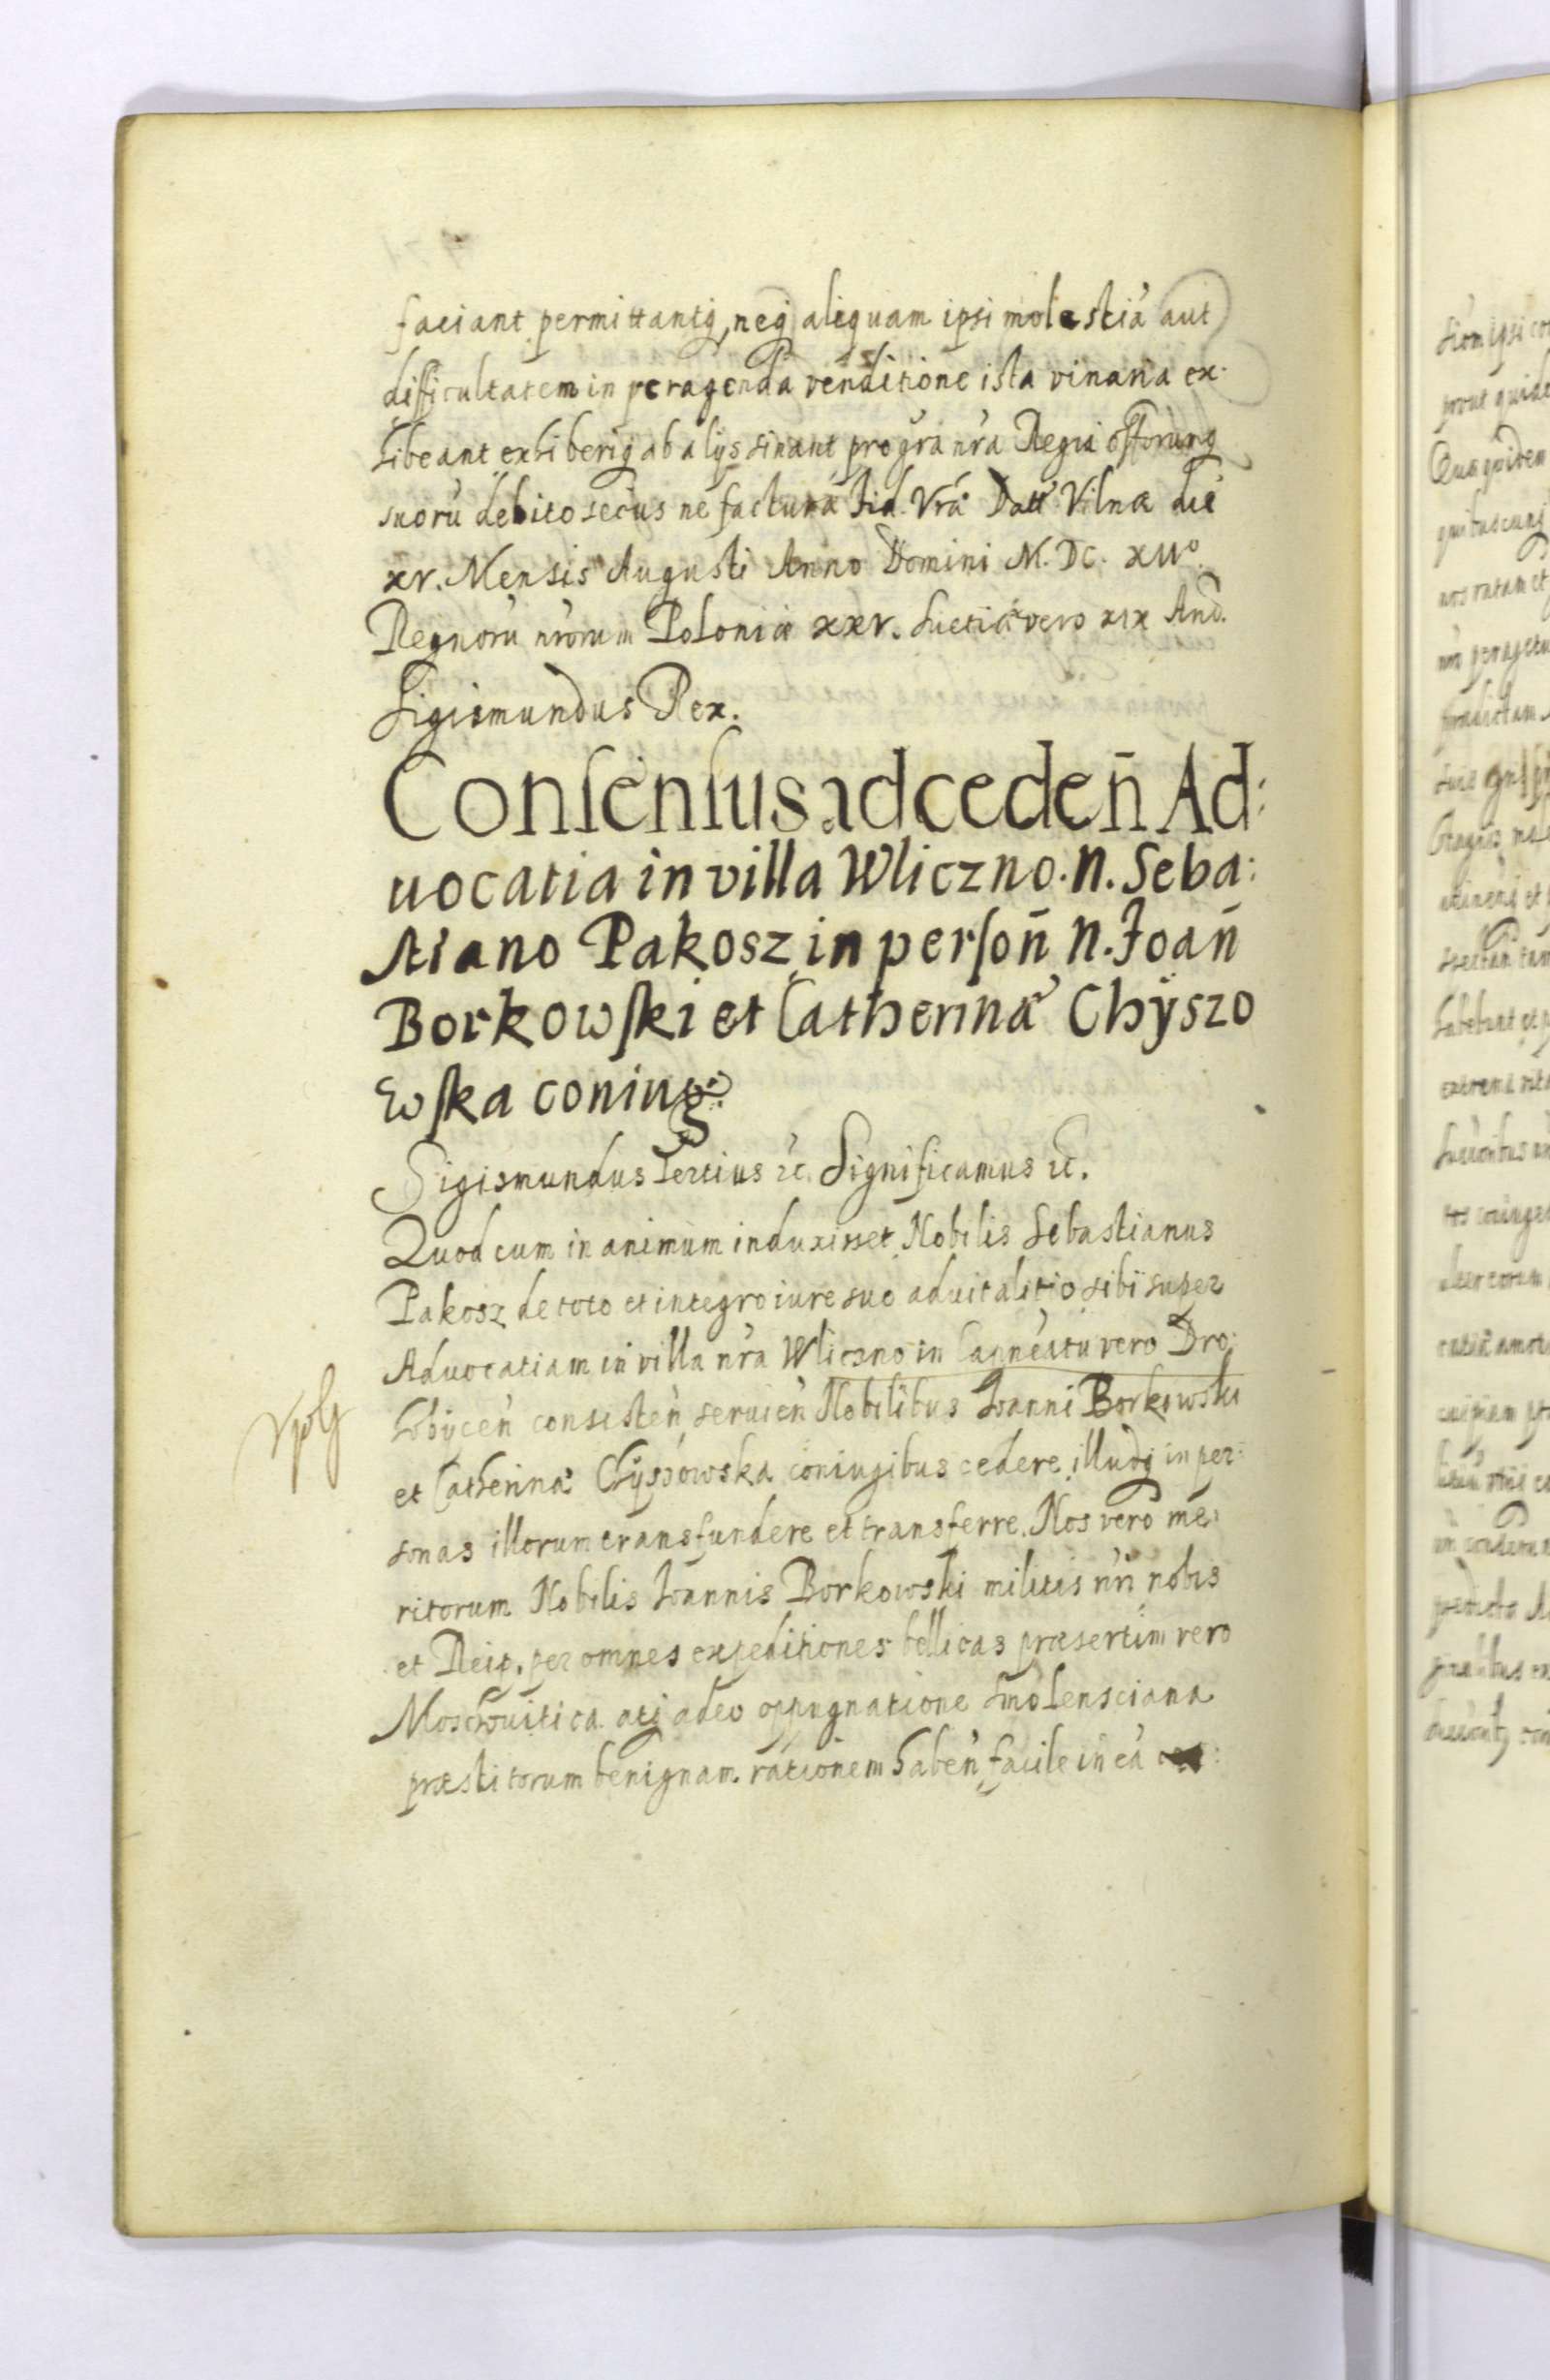 faciant permittantq, neq aliquam ipsi molestiã aut
difficultatem in peragenda venditione ista vinaria ex-
hibeant exhiberiq ab alijs sinant pro grã nrã Regia offorũmq
suorũ debito secus ne facturæ fid. Vrã Datt Vilnæ die
xv. Mensis Augusti Anno Domini M. DC. XIIo.
Regnorũ nrorum Poloniæ xxv. Suetiæ vero xix Anõ.
Sigismundus Rex.
Consensus ad cedeñ Ad:
uocatia in villa Wliczno. N. Seba:
stiano Pakosz in persoñ N. Joañ
Borkowski et Catherinæ Chÿszo
wska coniug:
Sigismundus Tertius &c. Significamus &c.
Quod cum in animum induxisset Nobilis Sebastianus
Pakosz de toto et integro iure suo aduitalitio sibi super
Aduocatiam in villa nrã Wliczno in Capneatu vero Dro:
hobÿceñ consisteñ seruieñ Nobilibus Ioanni Borkowski
et Catherinæ Chÿszowska coniugibus cedere illudq in per:
sonas illorum transfundere et transferre. Nos vero me:
ritorum Nobilis Ioannis Borkowski militis nri nobis
et Reip. per omnes expeditiones bellicas præsertim vero
Moschouitica atq adeo oppugnatione Smolensciana
præstitorum benignam rationem habeñ facile in eã